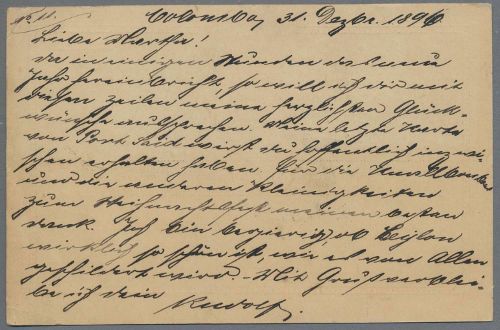 No. 11. Colombo, 31. Dezbr. 1896
Liebe Martha!
da in einigen Stunden das neue
Jahr hereinbricht, so will ich dir mit
diesen Zeilen meine herzlichsten Glück-
wünsche aussprechen. Meine letzte Karte
von Port Said wirst du hoffentlich inzwi-
schen erhalten haben. Für die
und die anderen Kleinigkeiten
zum Weihnachtsfest meinen besten
dank. Ich bin begierig, ob Ceylon
wirklich so schön ist, wie es von Allen
geschildert wird. Mit Gruß verblei-
be ich dein
Rudolf.